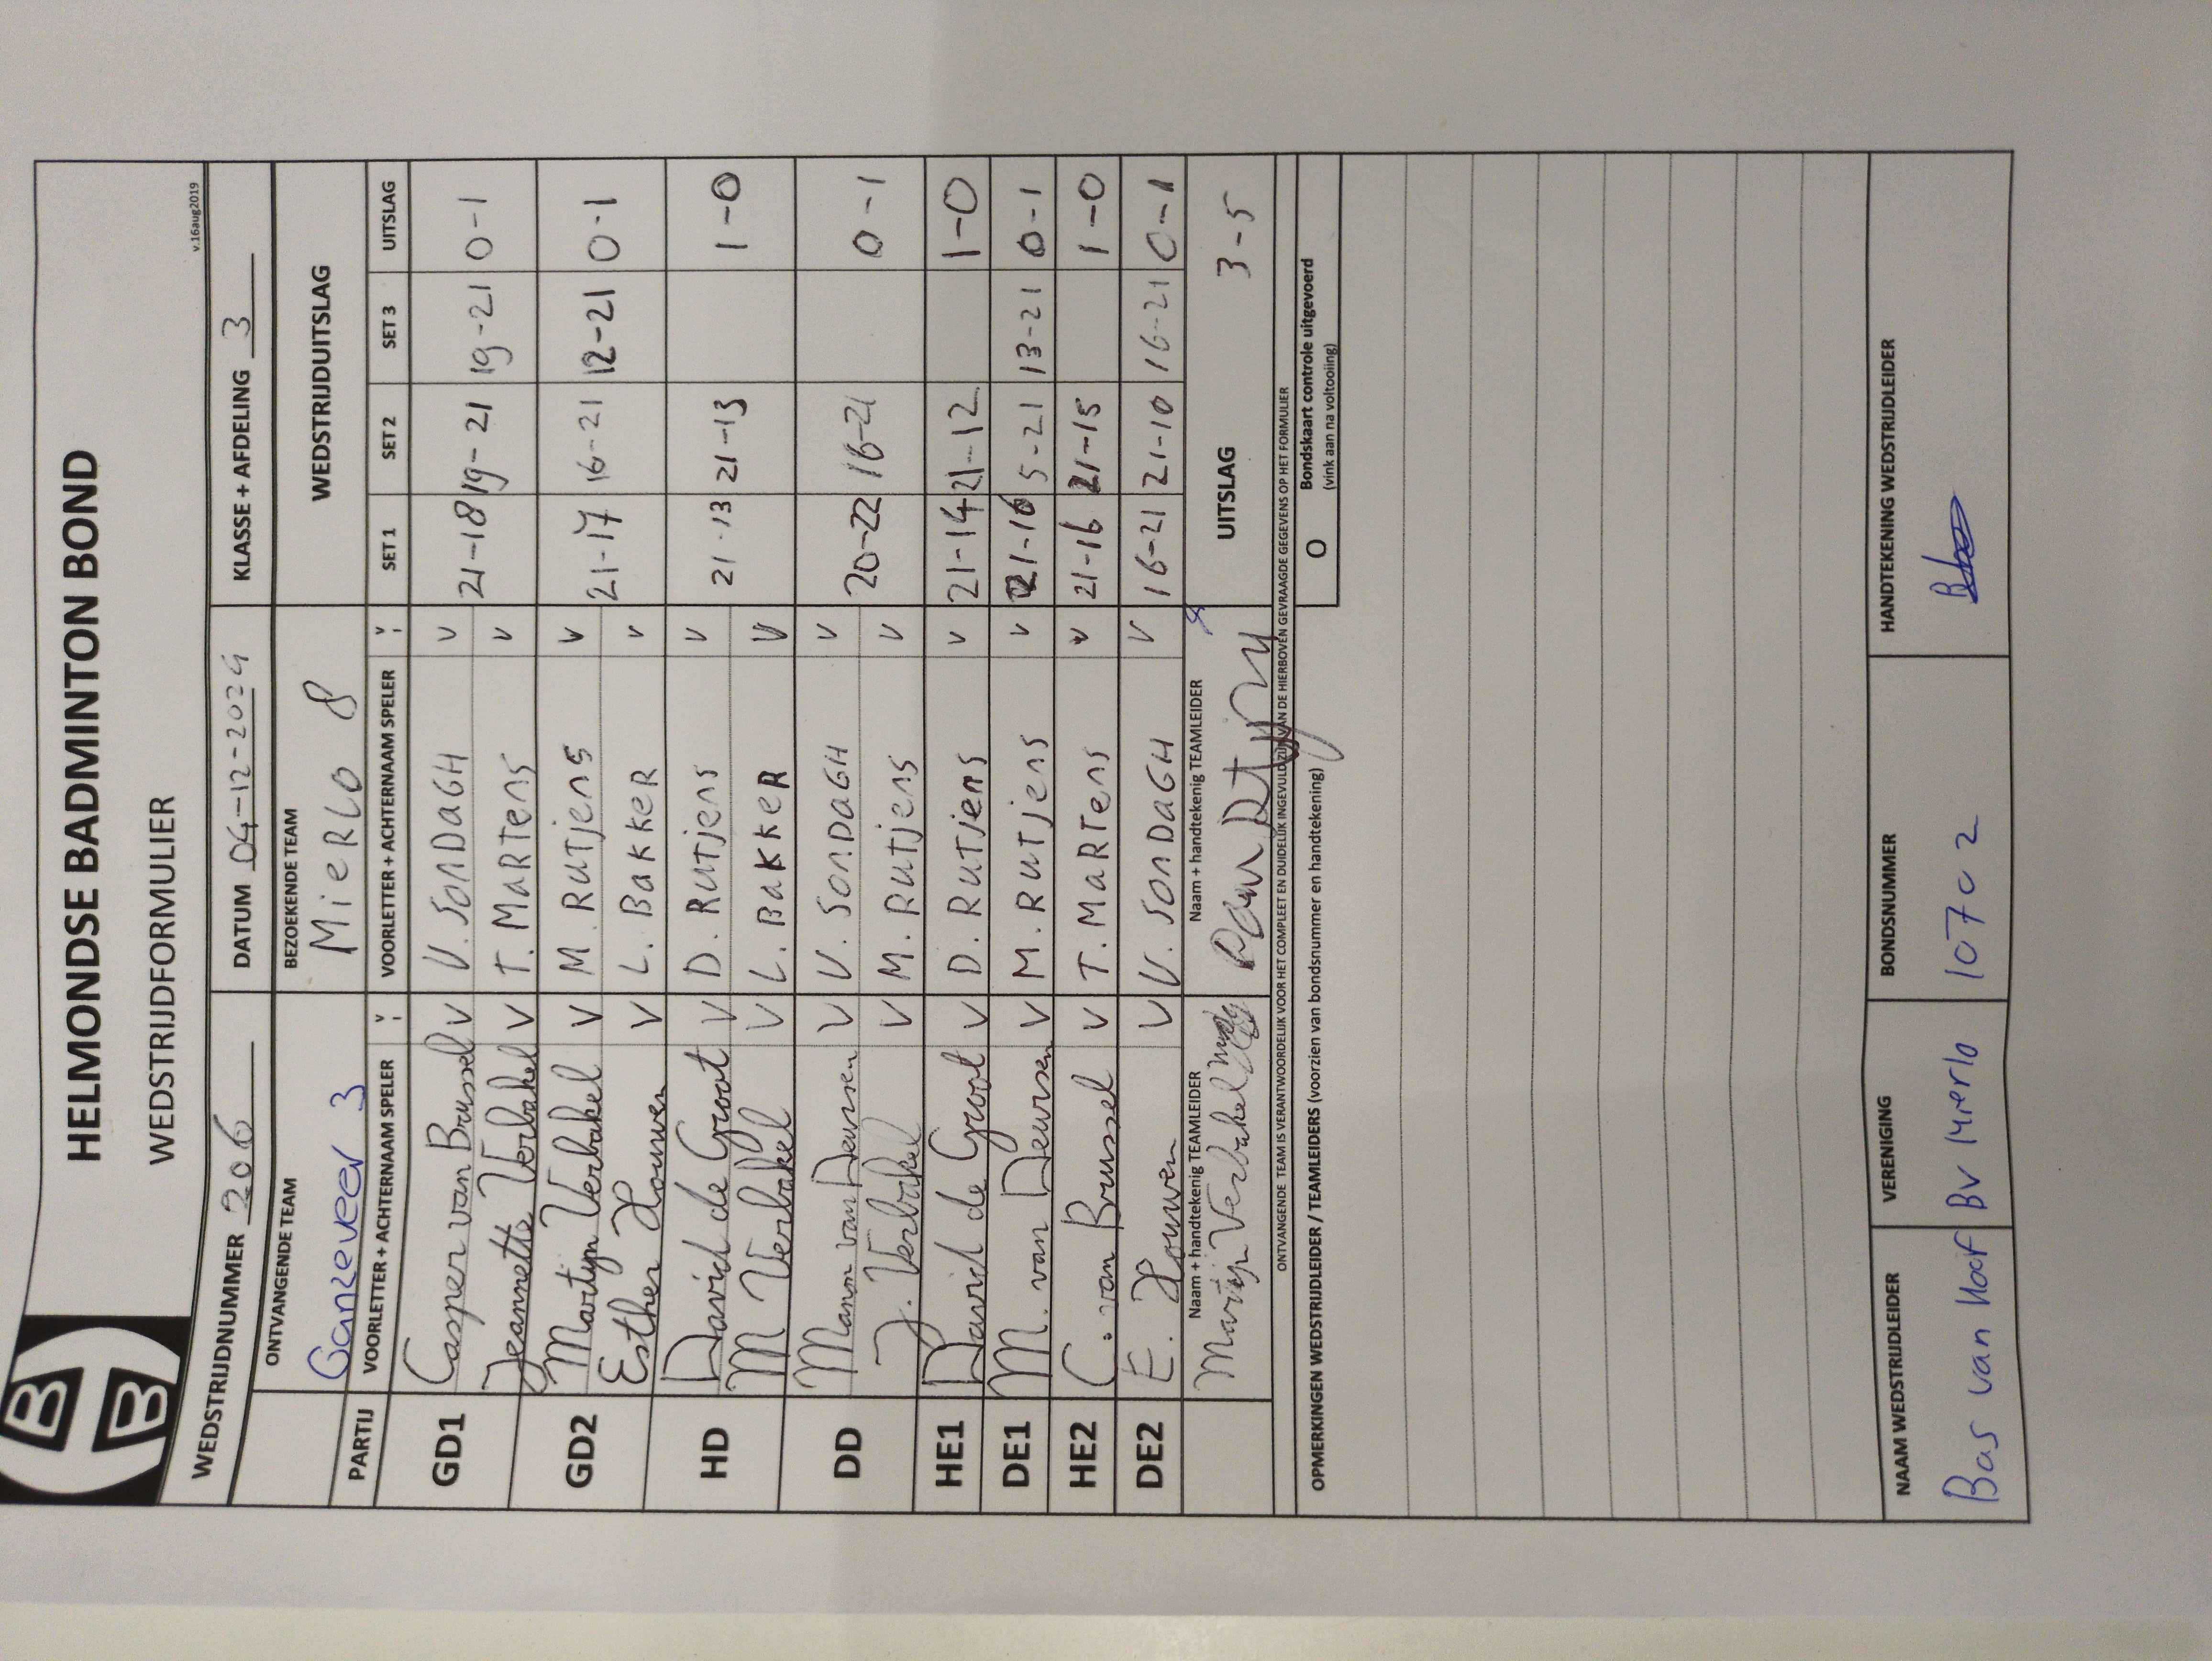 HELMONDSE BADMINTON BOND
WEDSTRIJDFORMULIER
v.16aug2019
WEDSTRIJDNUMMER 206 DATUM 04-12-2024 KLASSE + AFDELING 3
ONTVANGENDE TEAM BEZOEKENDE TEAM WEDSTRIJDUITSLAG
Ganzeveer 3 Mierlo 8
PARTIJ VOORLETTER + ACHTERNAAM SPELER V VOORLETTER + ACHTERNAAM SPELER V SET 1 SET 2 SET 3 UITSLAG
GD1 Casper van Brussel V V. SONDAGH V 21-18 19-21 19-21 0-1
Jeannette Verbakel V T. MARTens V
GD2 Martijn Verbakel V M. RUTjens V 21-17 16-21 12-21 0-1
Esther Houwen V L. BAKKER V
HD David de Groot V D. RUTjens V 21-13 21-13 1-0
M Verbakel V L. BAKKER V
DD Manon van Deursen V V. SONDAGH V 20-22 16-21 0-1
J. Verbakel V M. RUTjens V
HE1 David de Groot V D. RUTjens V 21-14 21-12 1-0
DE1 M. van Deursen V M. RUTjens V 21-16 5-21 13-21 0-1
HE2 C. van Brussel V T. MARTens V 21-16 21-15 1-0
DE2 E. Houwen V V. SONDAGH V 16-21 21-10 16-21 0-1
Naam + handtekenig TEAMLEIDER Naam + handtekenig TEAMLEIDER UITSLAG 3-5
Martijn Verbakel
ONTVANGENDE TEAM IS VERANTWOORDELIJK VOOR HET COMPLEET EN DUIDELIJK INGEVULD ZIJN VAN DE HIERBOVEN GEVRAAGDE GEGEVENS OP HET FORMULIER
OPMERKINGEN WEDSTRIJDLEIDER / TEAMLEIDERS (voorzien van bondsnummer en handtekening) O Bondskaart controle uitgevoerd
(vink aan na voltooiing)
NAAM WEDSTRIJDLEIDER VERENIGING BONDSNUMMER HANDTEKENING WEDSTRIJDLEIDER
Bas van Hoof BV Mierlo 107c2